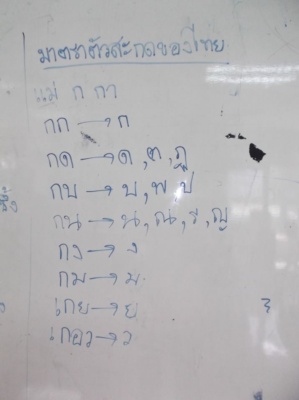 มาตราตัวสะกดของไทย
แม่ ก กา
กก → ก
กด → ด, ต, ฎ
กบ → บ, พ ป
กน → น, ณ, ร, ญ
กง → ง
กม → ม
เกย → ย
เกอว → ว